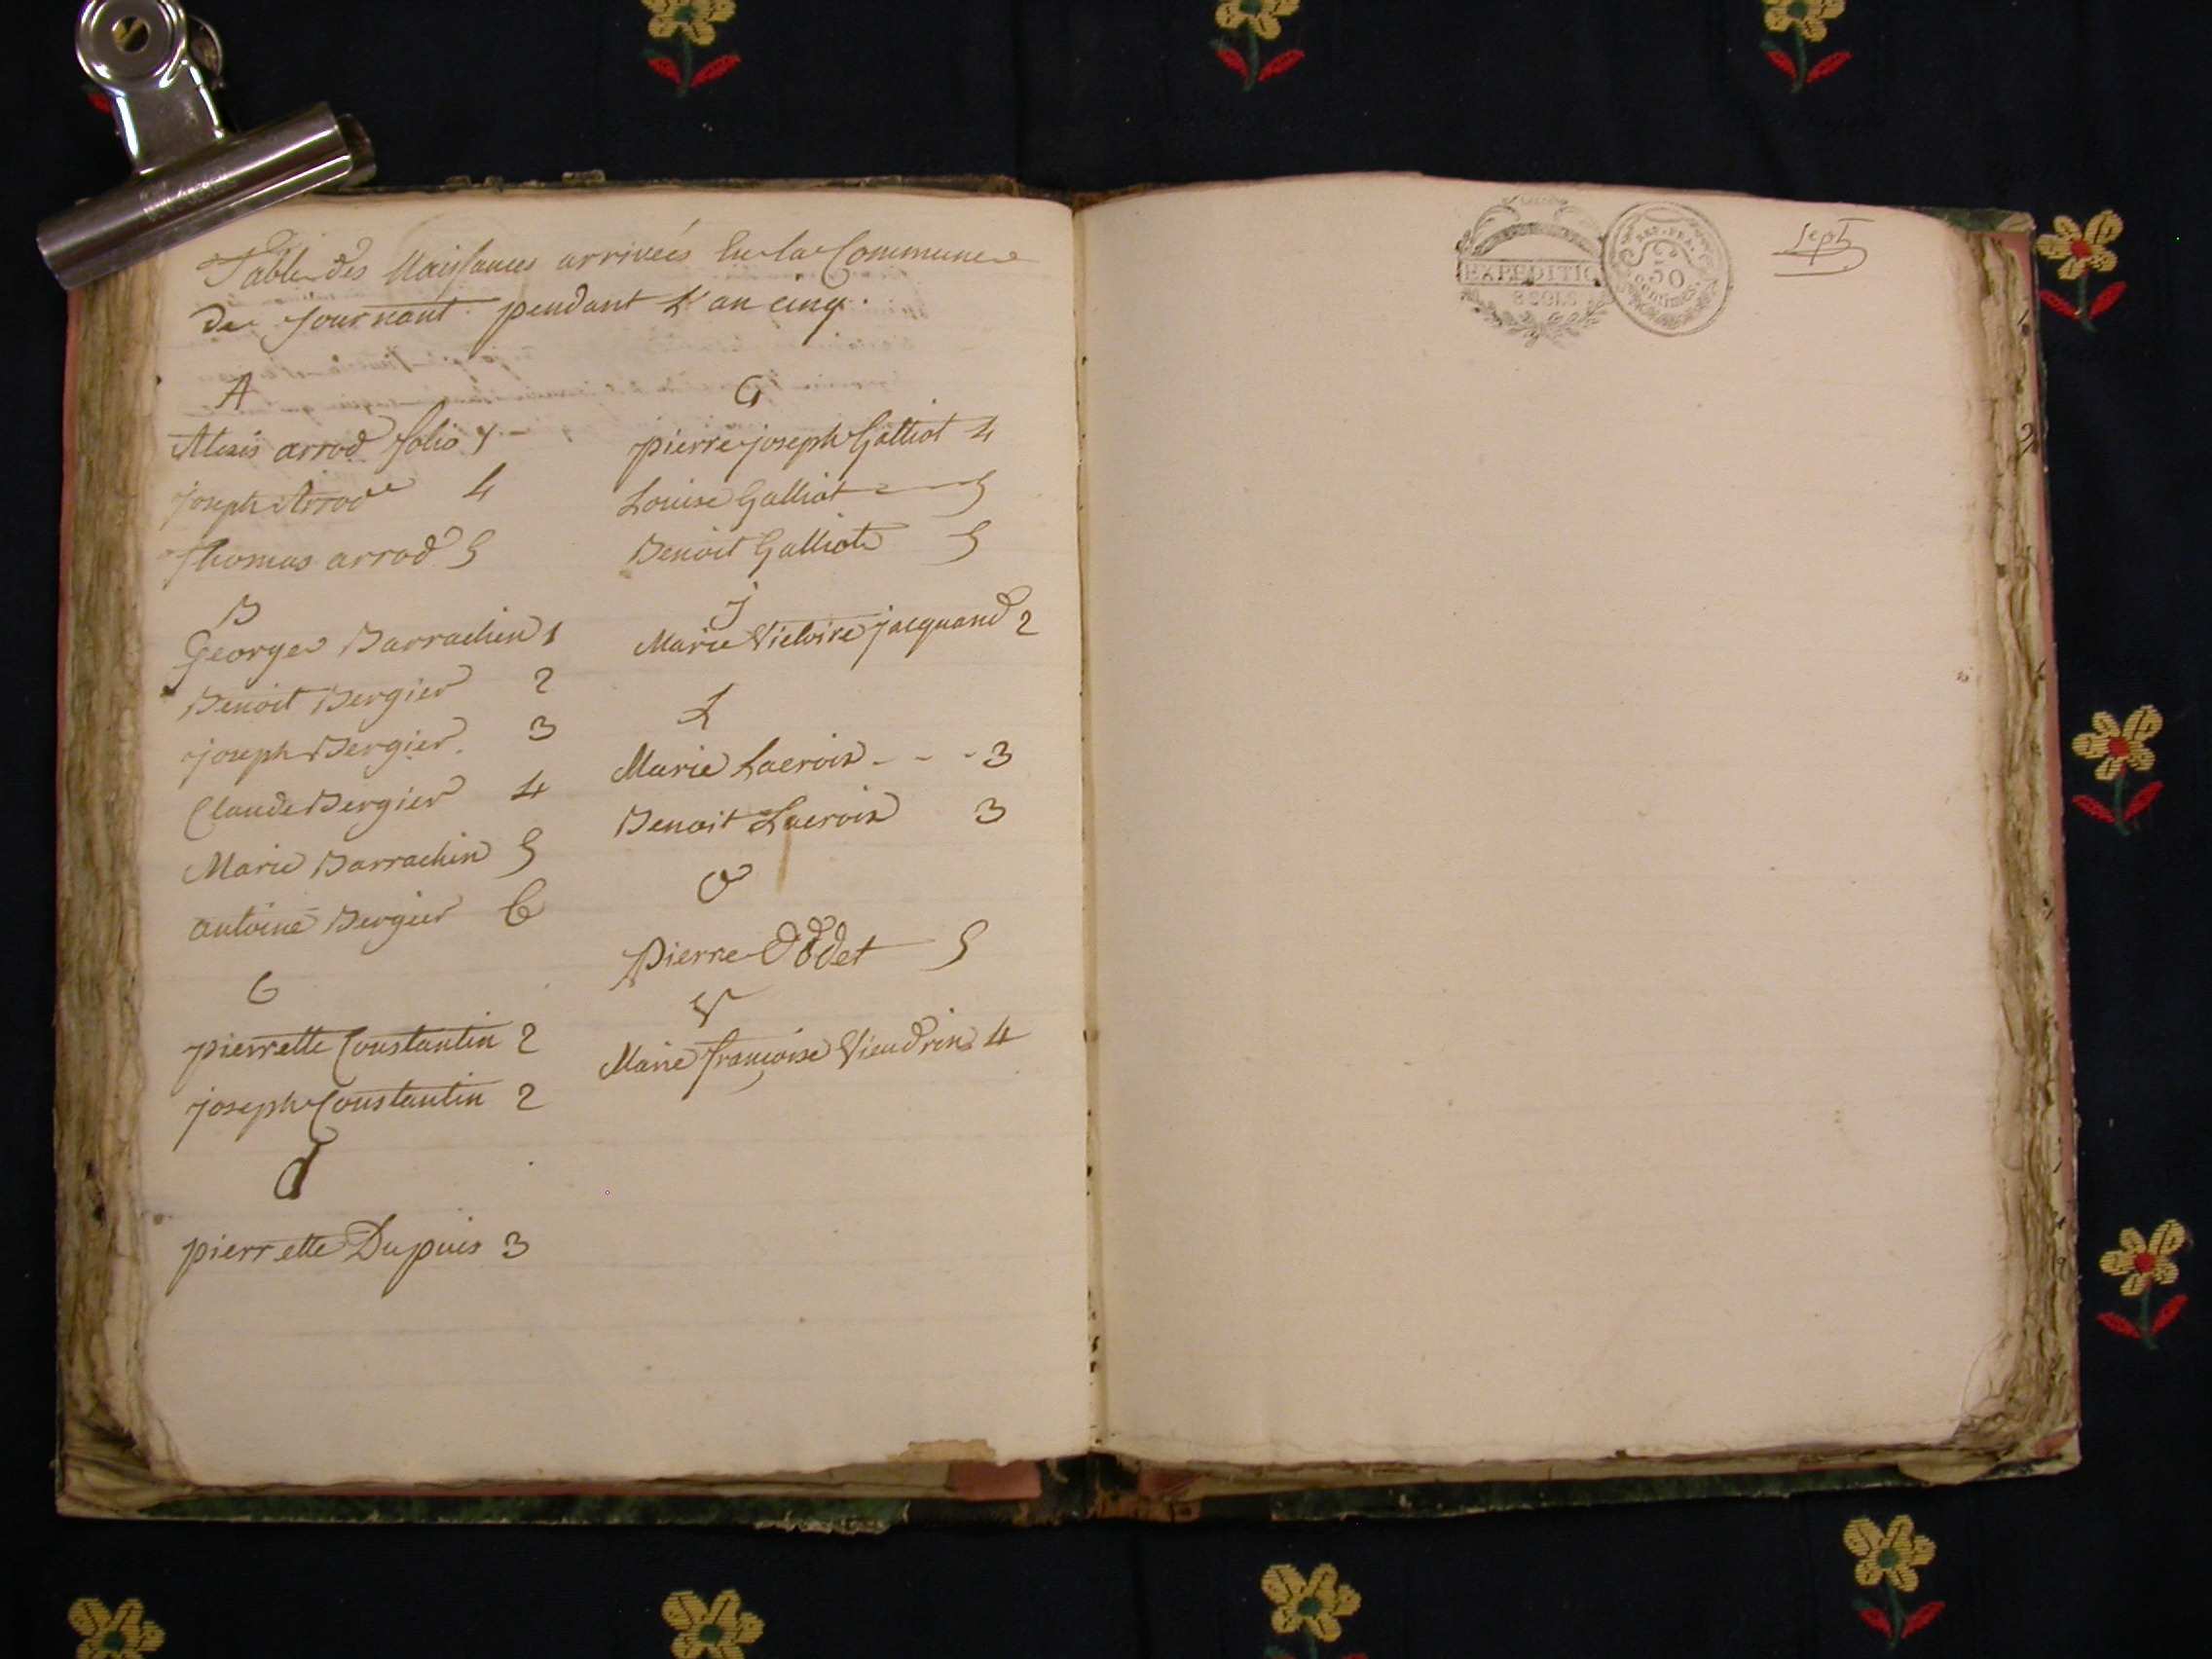 Table des Naissances arrivées En la Commune
de Journant pendant L'an cinq.
A
Alexis arrod folio 1 -
joseph Arrod 4
Thomas arrod 5
B
George Barrachin 1
Benoit Bergier 2
joseph Bergier. 3
Claude Bergier 4
Marie Barrachin 5
antoine Bergier 6
C
pierrette Constantin 2
joseph Constantin 2
d
pierrette Dupuis 3
G
pierre joseph Galliot 4
Louise Galliot 5
Benoit Galliot 5
J
Marie Victoire jacquand 2
L
Marie Lacroix - - - 3
Benoit Lacroix 3
O
Pierre Oddet 5
V
Marie françoise Vieudrin 4
EXPEDITIO
8 SOLS
REP. FRA.
50
Centimes.
Sept